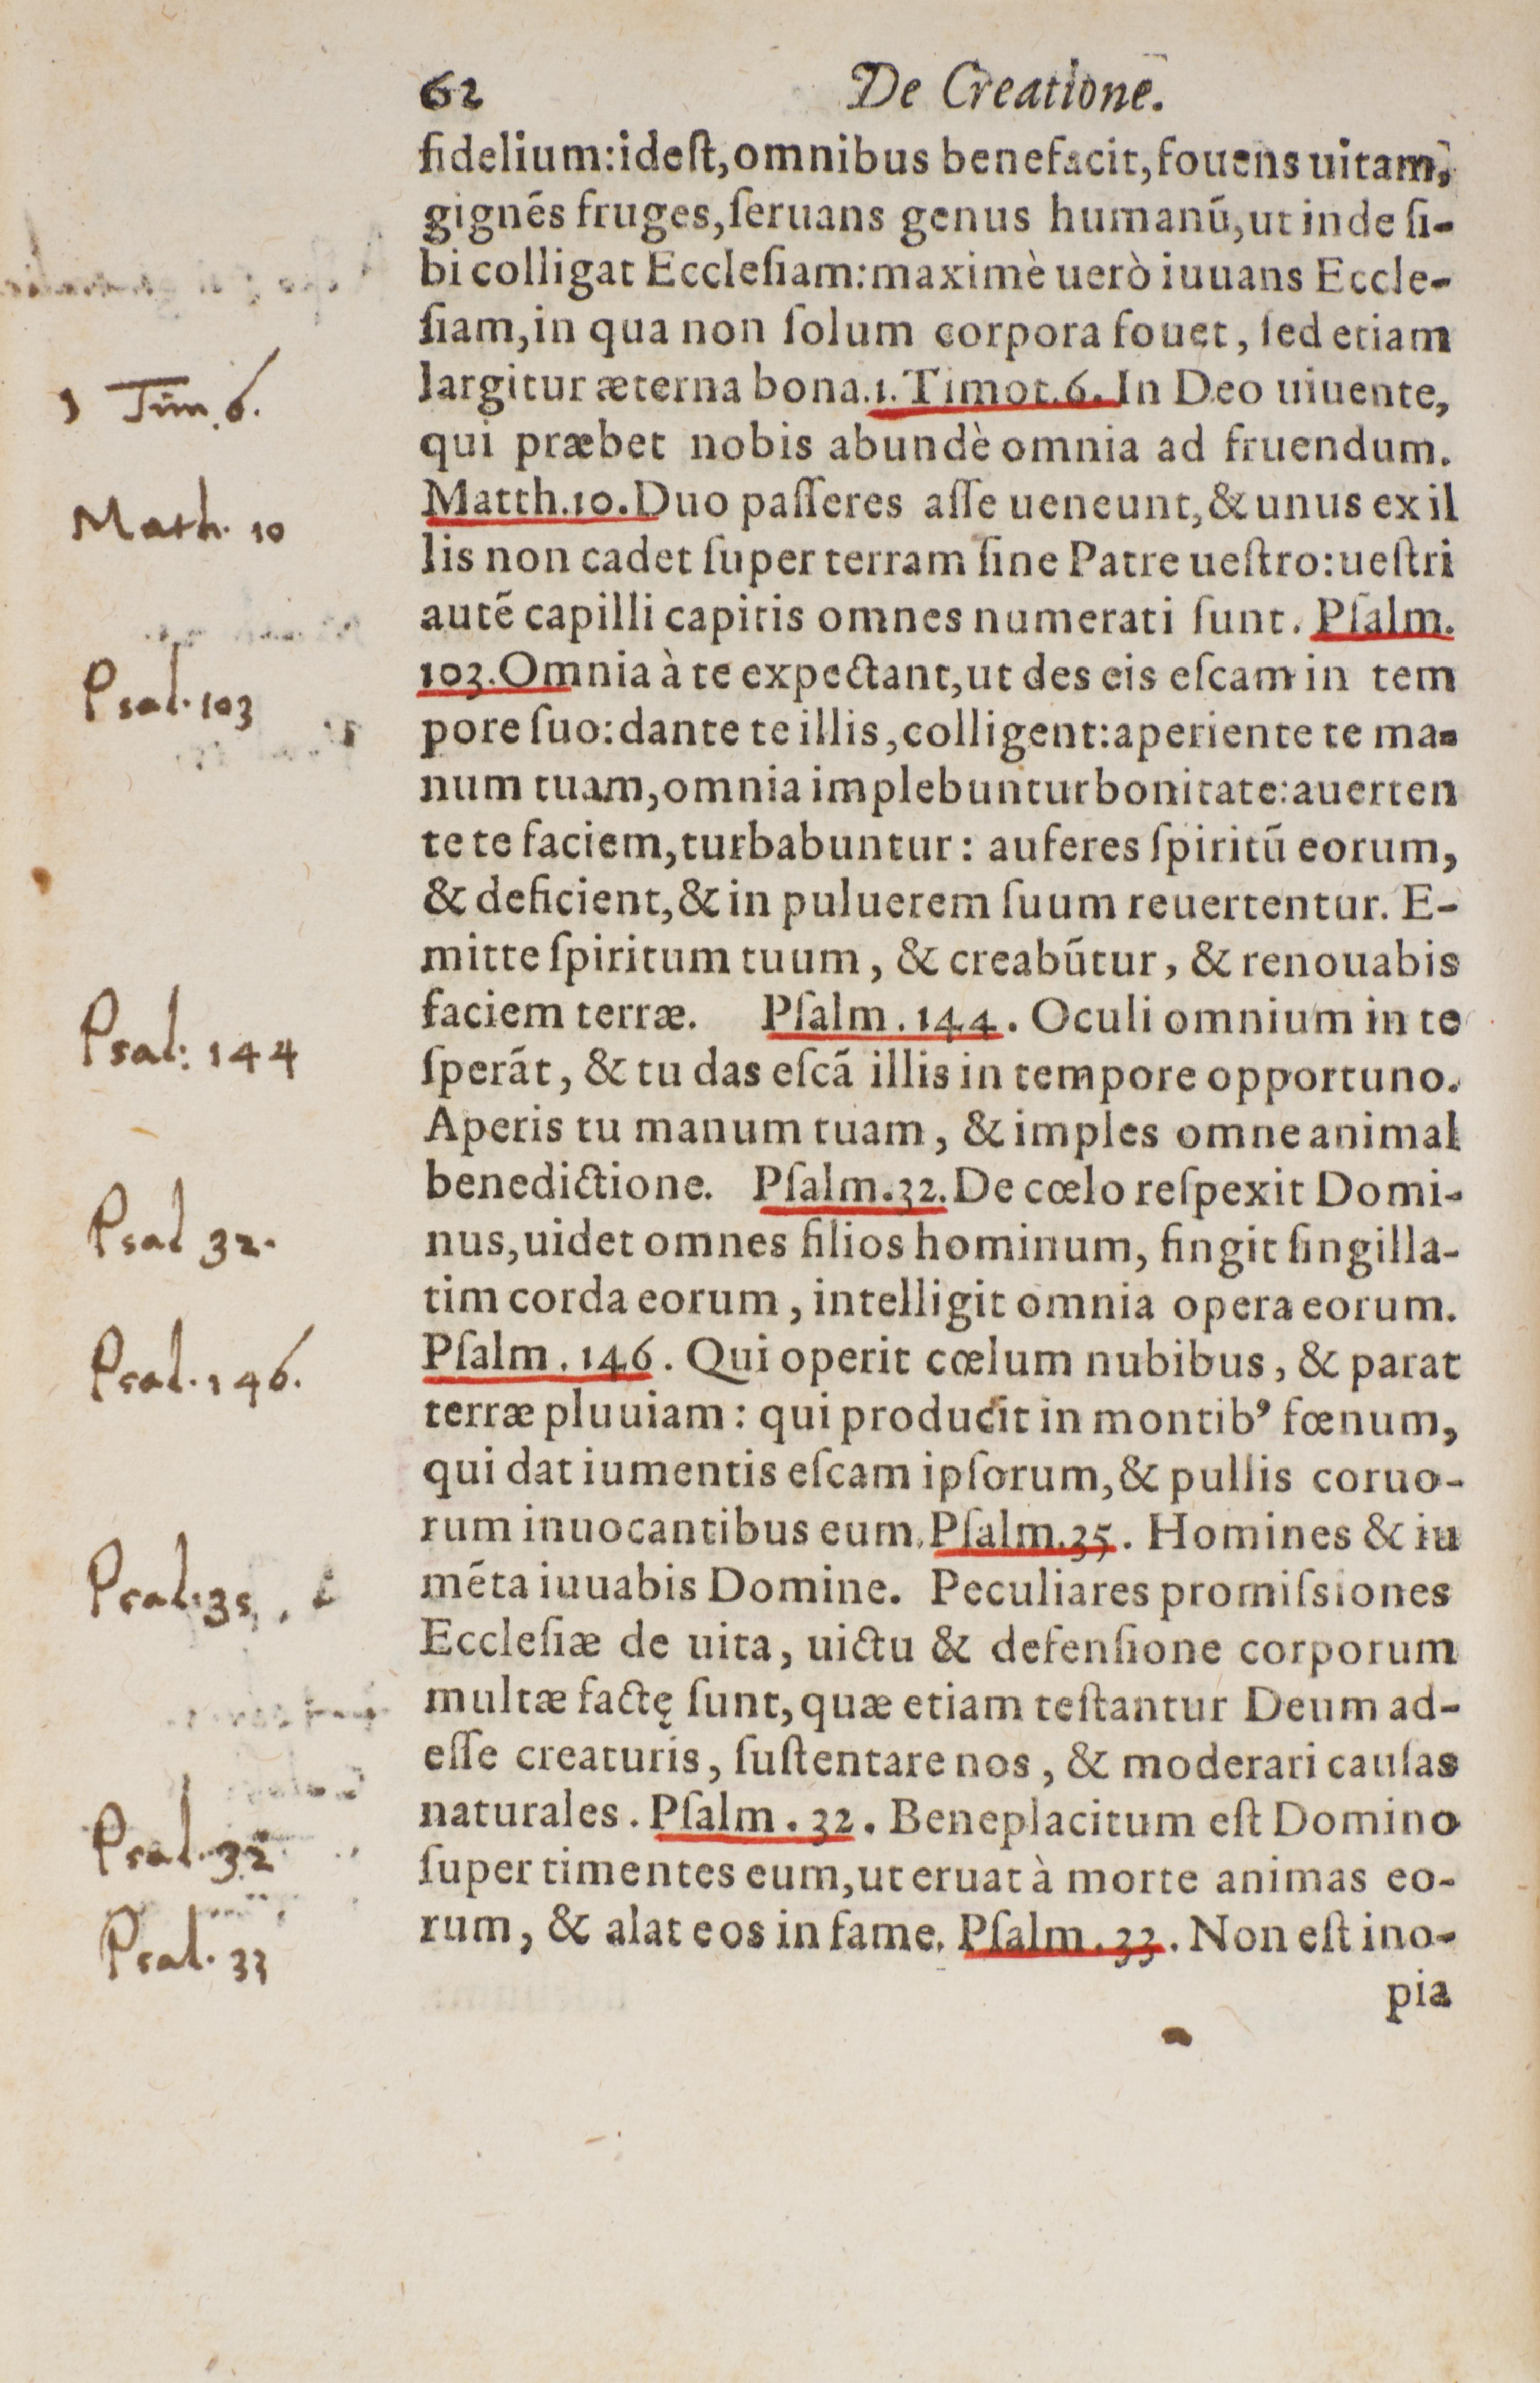 62 De Creatione.
fidelium:idest,omnibus benefacit,fouens uitam,
gignẽs fruges,ſeruans genus humanũ,ut inde ſi-
bi colligat Eccleſiam:maximè uerò iuuans Eccle-
ſiam,in qua non ſolum corpora fouet, ſed etiam
largitur æterna bona.1. Timot.6. In Deo uiuente,
1 Tim 6.
qui præbet nobis abundè omnia ad fruendum.
Matth.10.Duo paſſeres aſſe ueneunt,& unus ex il
Math. 10
lis non cadet ſuper terram ſine Patre ueſtro:ueſtri
autẽ capilli capitis omnes numerati ſunt. Pſalm.
103.Omnia à te expectant,ut des eis eſcam in tem
Psal. 103
pore ſuo:dante te illis,colligent:aperiente te ma-
num tuam,omnia implebuntur bonitate:auerten
te te faciem,turbabuntur: auferes ſpiritũ eorum,
& deficient,& in puluerem ſuum reuertentur. E-
mitte ſpiritum tuum, & creabũtur, & renouabis
faciem terræ. Pſalm.144. Oculi omnium in te
Psal: 144
ſperãt, & tu das eſcã illis in tempore opportuno.
Aperis tu manum tuam, & imples omne animal
benedictione. Pſalm.32.De cœlo reſpexit Domi-
Psal 32.
nus,uidet omnes filios hominum, fingit ſingilla-
tim corda eorum, intelligit omnia opera eorum.
Pſalm.146. Qui operit cœlum nubibus, & parat
Psal. 146.
terræ pluuiam: qui producit in montibꝰ fœnum,
qui dat iumentis eſcam ipſorum,& pullis coruo-
rum inuocantibus eum.Pſalm.35. Homines & iu
mẽta iuuabis Domine. Peculiares promiſsiones
Psal:35
Eccleſiæ de uita, uictu & defenſione corporum
multæ factę ſunt,quæ etiam teſtantur Deum ad-
eſſe creaturis, ſuſtentare nos, & moderari cauſas
naturales. Pſalm.32. Beneplacitum eſt Domino
Psal. 32
ſuper timentes eum,ut eruat à morte animas eo-
rum, & alat eos in fame. Pſalm.33. Non eſt ino-
Psal. 33
pia